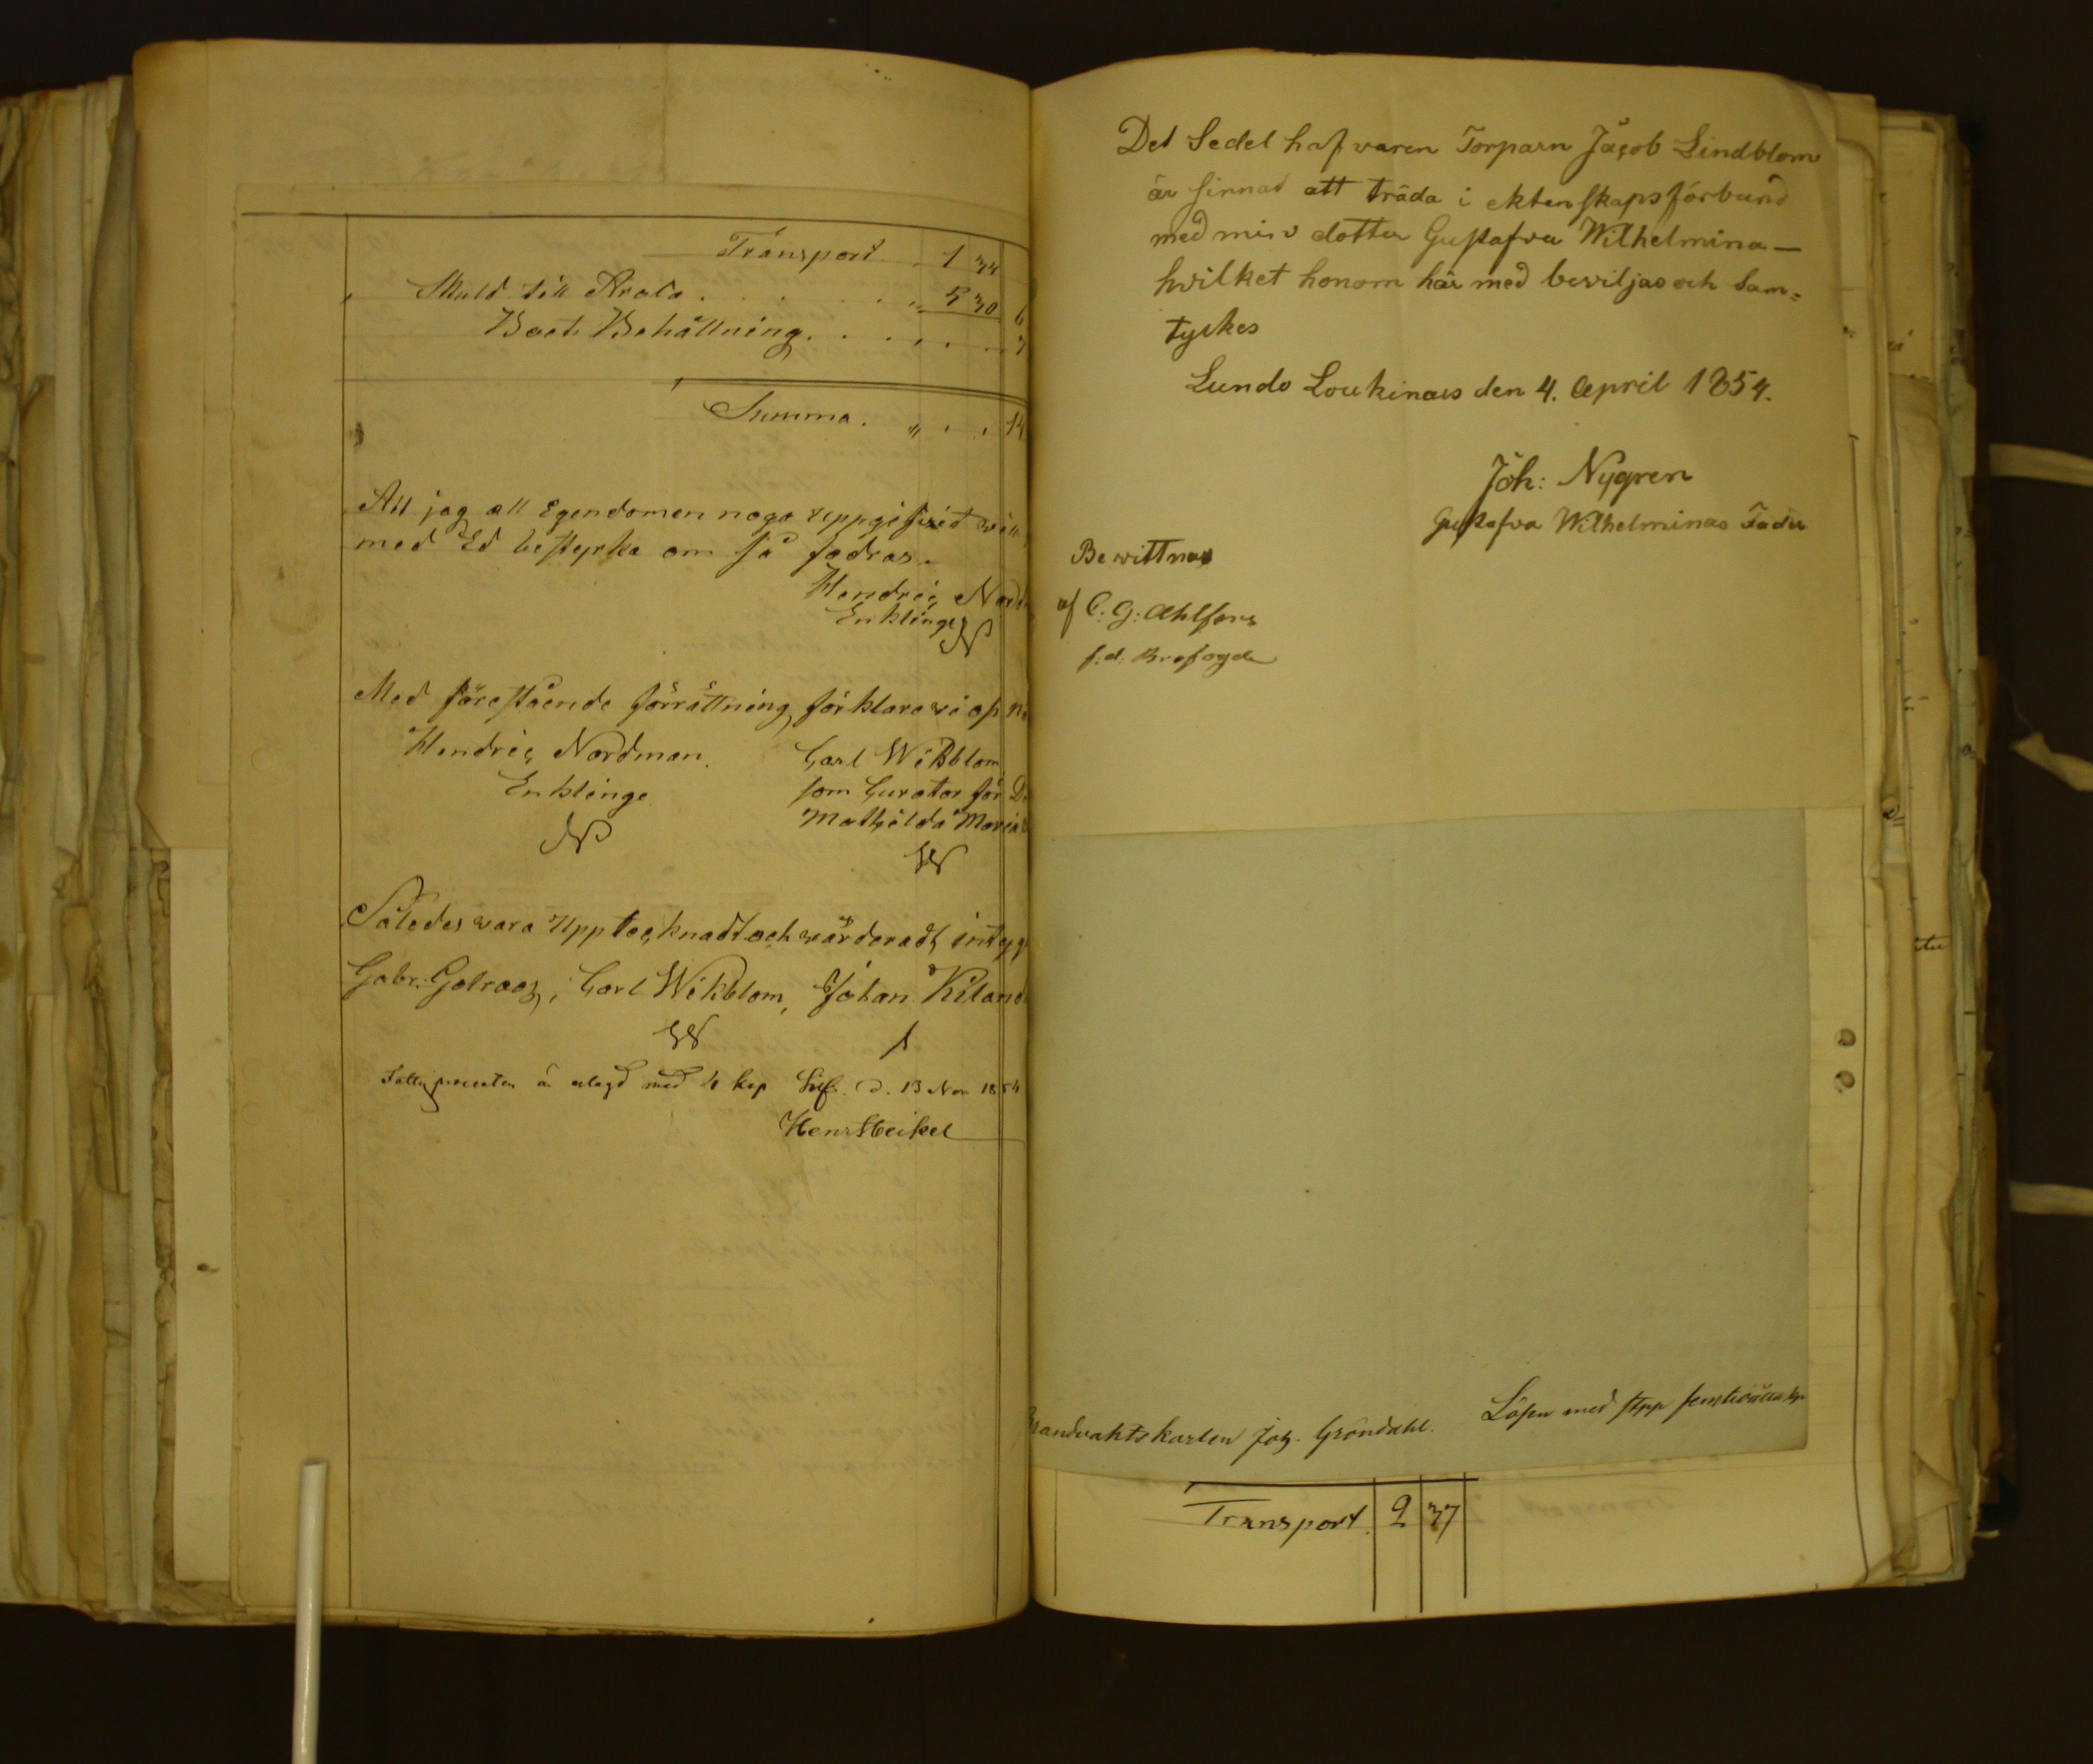 Transport . 1 34
Skuld till Arola . . . . . „ 5 30 6
Boets Behållning . . . . . 7
Summa . „ . . 14
Att jag all Egendomen noga uppgifvid will
med Ed bestyrka om så fodras.
Hendric Nord
Enklinge
Med förestående förrättning förklara vi os nö
Hendric Nordman. Carl Wikblom
Enklinge. som Curator för D
Mathilda Maria
Således vara Upptecknadt och värderadt, intyg
Gabr: Galraos, Carl Wikblom, Johan Kiland
Fattigprocenten är erlagd med 4 kop Silf. d. 13 Nov 1854
Henr Heikel
Det Sedel hafvaren Torparn Jacob Lindblom
är sinnad att träda i ektenskapsförbund
med min dotter Gustafva Wilhelmina —
hvilket honom här med beviljas och Sam=
tyckes
Lundo Loukinais den 4. April 1854.
Joh: Nygren
Gustafva Wilhelminas Fader
Bewittnas
af C: G: Ahlfors
f: d: Brofogde
Brandvaktskarlen Joh. Gröndahl. Lösen med stpp femtioåtta kop
Transport 2 37